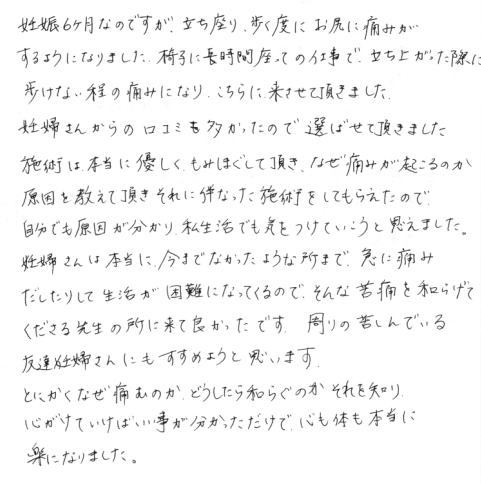 妊娠6ケ月なのですが、立ち座り、歩く度に お尻に痛みが
するようになりました、椅子に長時間座っての仕事で、立ち上がった際に
歩けない程の痛みになり、こちらに来させて頂きました。
妊婦さんからの口コミも多かったので 選ばせて頂きました
施術は、本当に 優しく、もみほぐして頂き、なぜ痛みが起こるのか
原因を教えて頂き それに併なった施術をしてもらえたので、
自分でも原因が分かり、私生活でも気をつけていこうと思えました。
妊婦さんは本当に、今までなかったような所まで、急に痛み
だしたりして生活が 困難になってくるので、そんな苦痛を和らげて
くださる先生の所に来て良かったです、周りの苦しんでいる
友達妊婦さんにもすすめようと思います。
とにかくなぜ痛むのか、どうしたら和らぐのか それを知り、
心がけていけばいい事が分かっただけで、心も体も本当に
楽になりました。